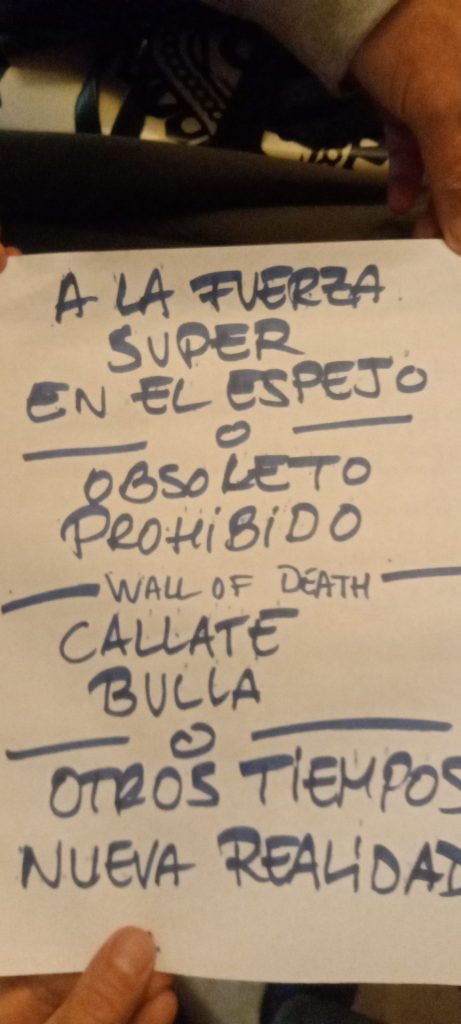 A LA FUERZA
SUPER
EN EL ESPEJO
— O —
OBSOLETO
PROHIBIDO
— WALL OF DEATH —
CALLATE
BULLA
— O —
OTROS TIEMPOS
NUEVA REALIDAD